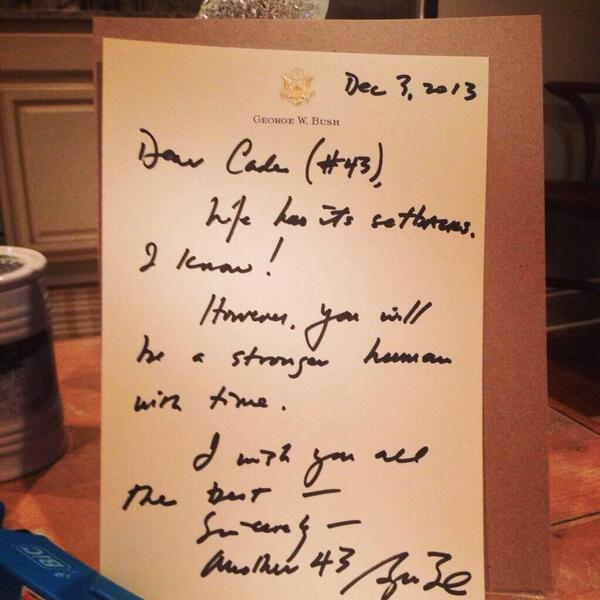 Dec 3, 2013
GEORGE W. BUSH
Dear Cade (#43),
Life has its setbacks.
I know!
However, you will
be a stronger human
with time.
I wish you all
the best —
Sincerely —
Another 43
BIC